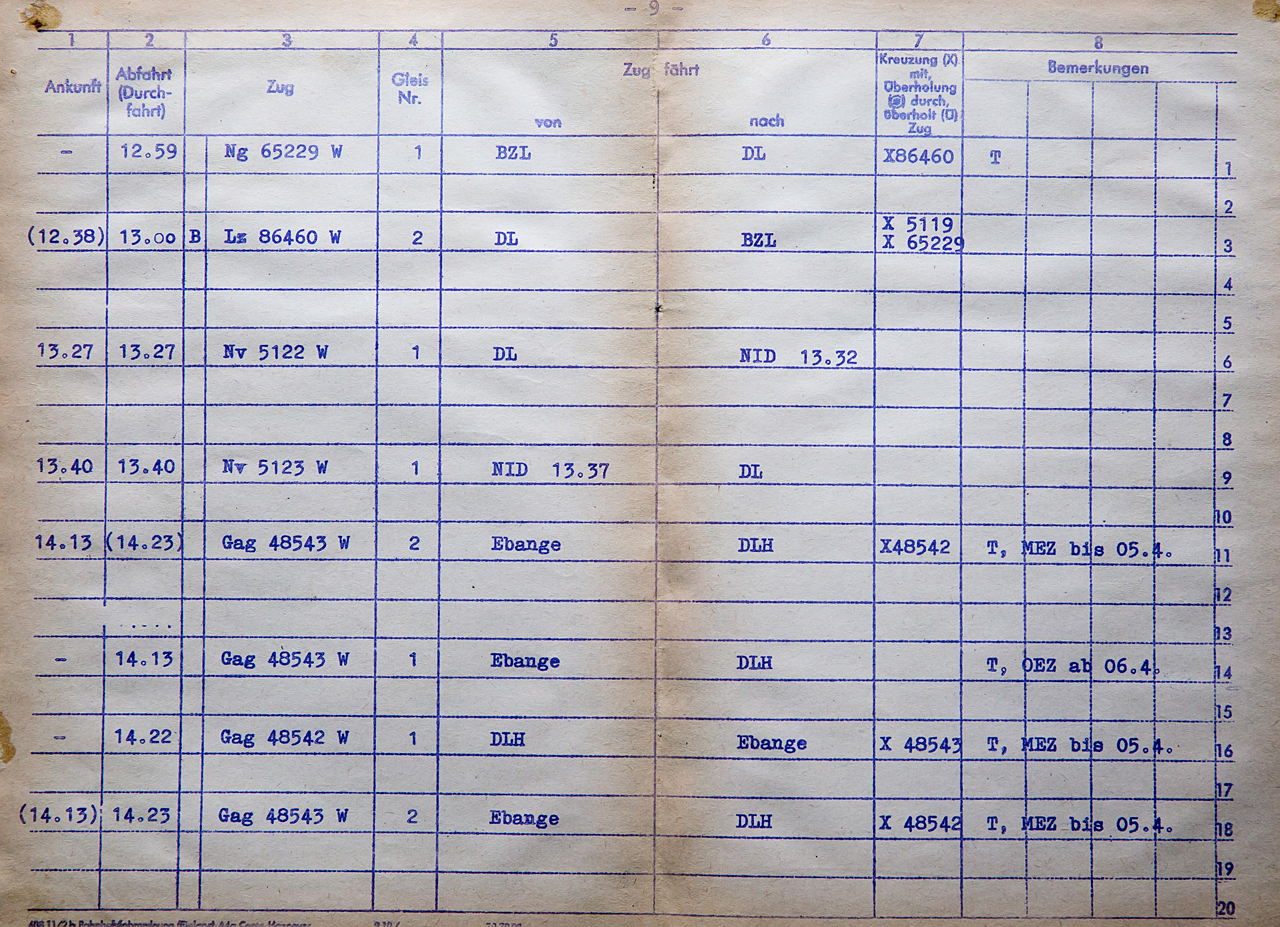 - 9 -
1 2 3 4 5 6 7 8
Ankunft Abfahrt (Durch- fahrt) Zug Gleis Nr. Zug fährt von nach Kreuzung (X) mit, Überholung durch, überholt (Ü) Zug Bemerkungen
- 12.59 Ng 65229 W 1 BZL DL X86460 T 1
2
(12.38) 13.00 B Lz 86460 W 2 DL BZL X 5119 X 65229 3
4
5
13.27 13.27 Nv 5122 W 1 DL NID 13.32 6
7
8
13.40 13.40 Nv 5123 W 1 NID 13.37 DL 9
10
14.13 (14.23) Gag 48543 W 2 Ebange DLH X48542 T, MEZ bis 05.4. 11
12
13
- 14.13 Gag 48543 W 1 Ebange DLH T, OEZ ab 06.4. 14
15
- 14.22 Gag 48542 W 1 DLH Ebange X 48543 T, MEZ bis 05.4. 16
17
(14.13) 14.23 Gag 48543 W 2 Ebange DLH X 48542 T, MEZ bis 05.4. 18
19
20